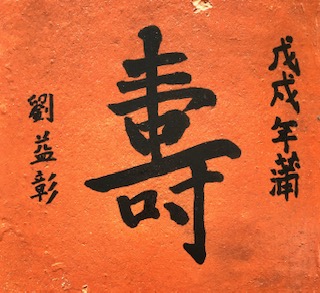 戊戌年蒲
壽
劉益彰